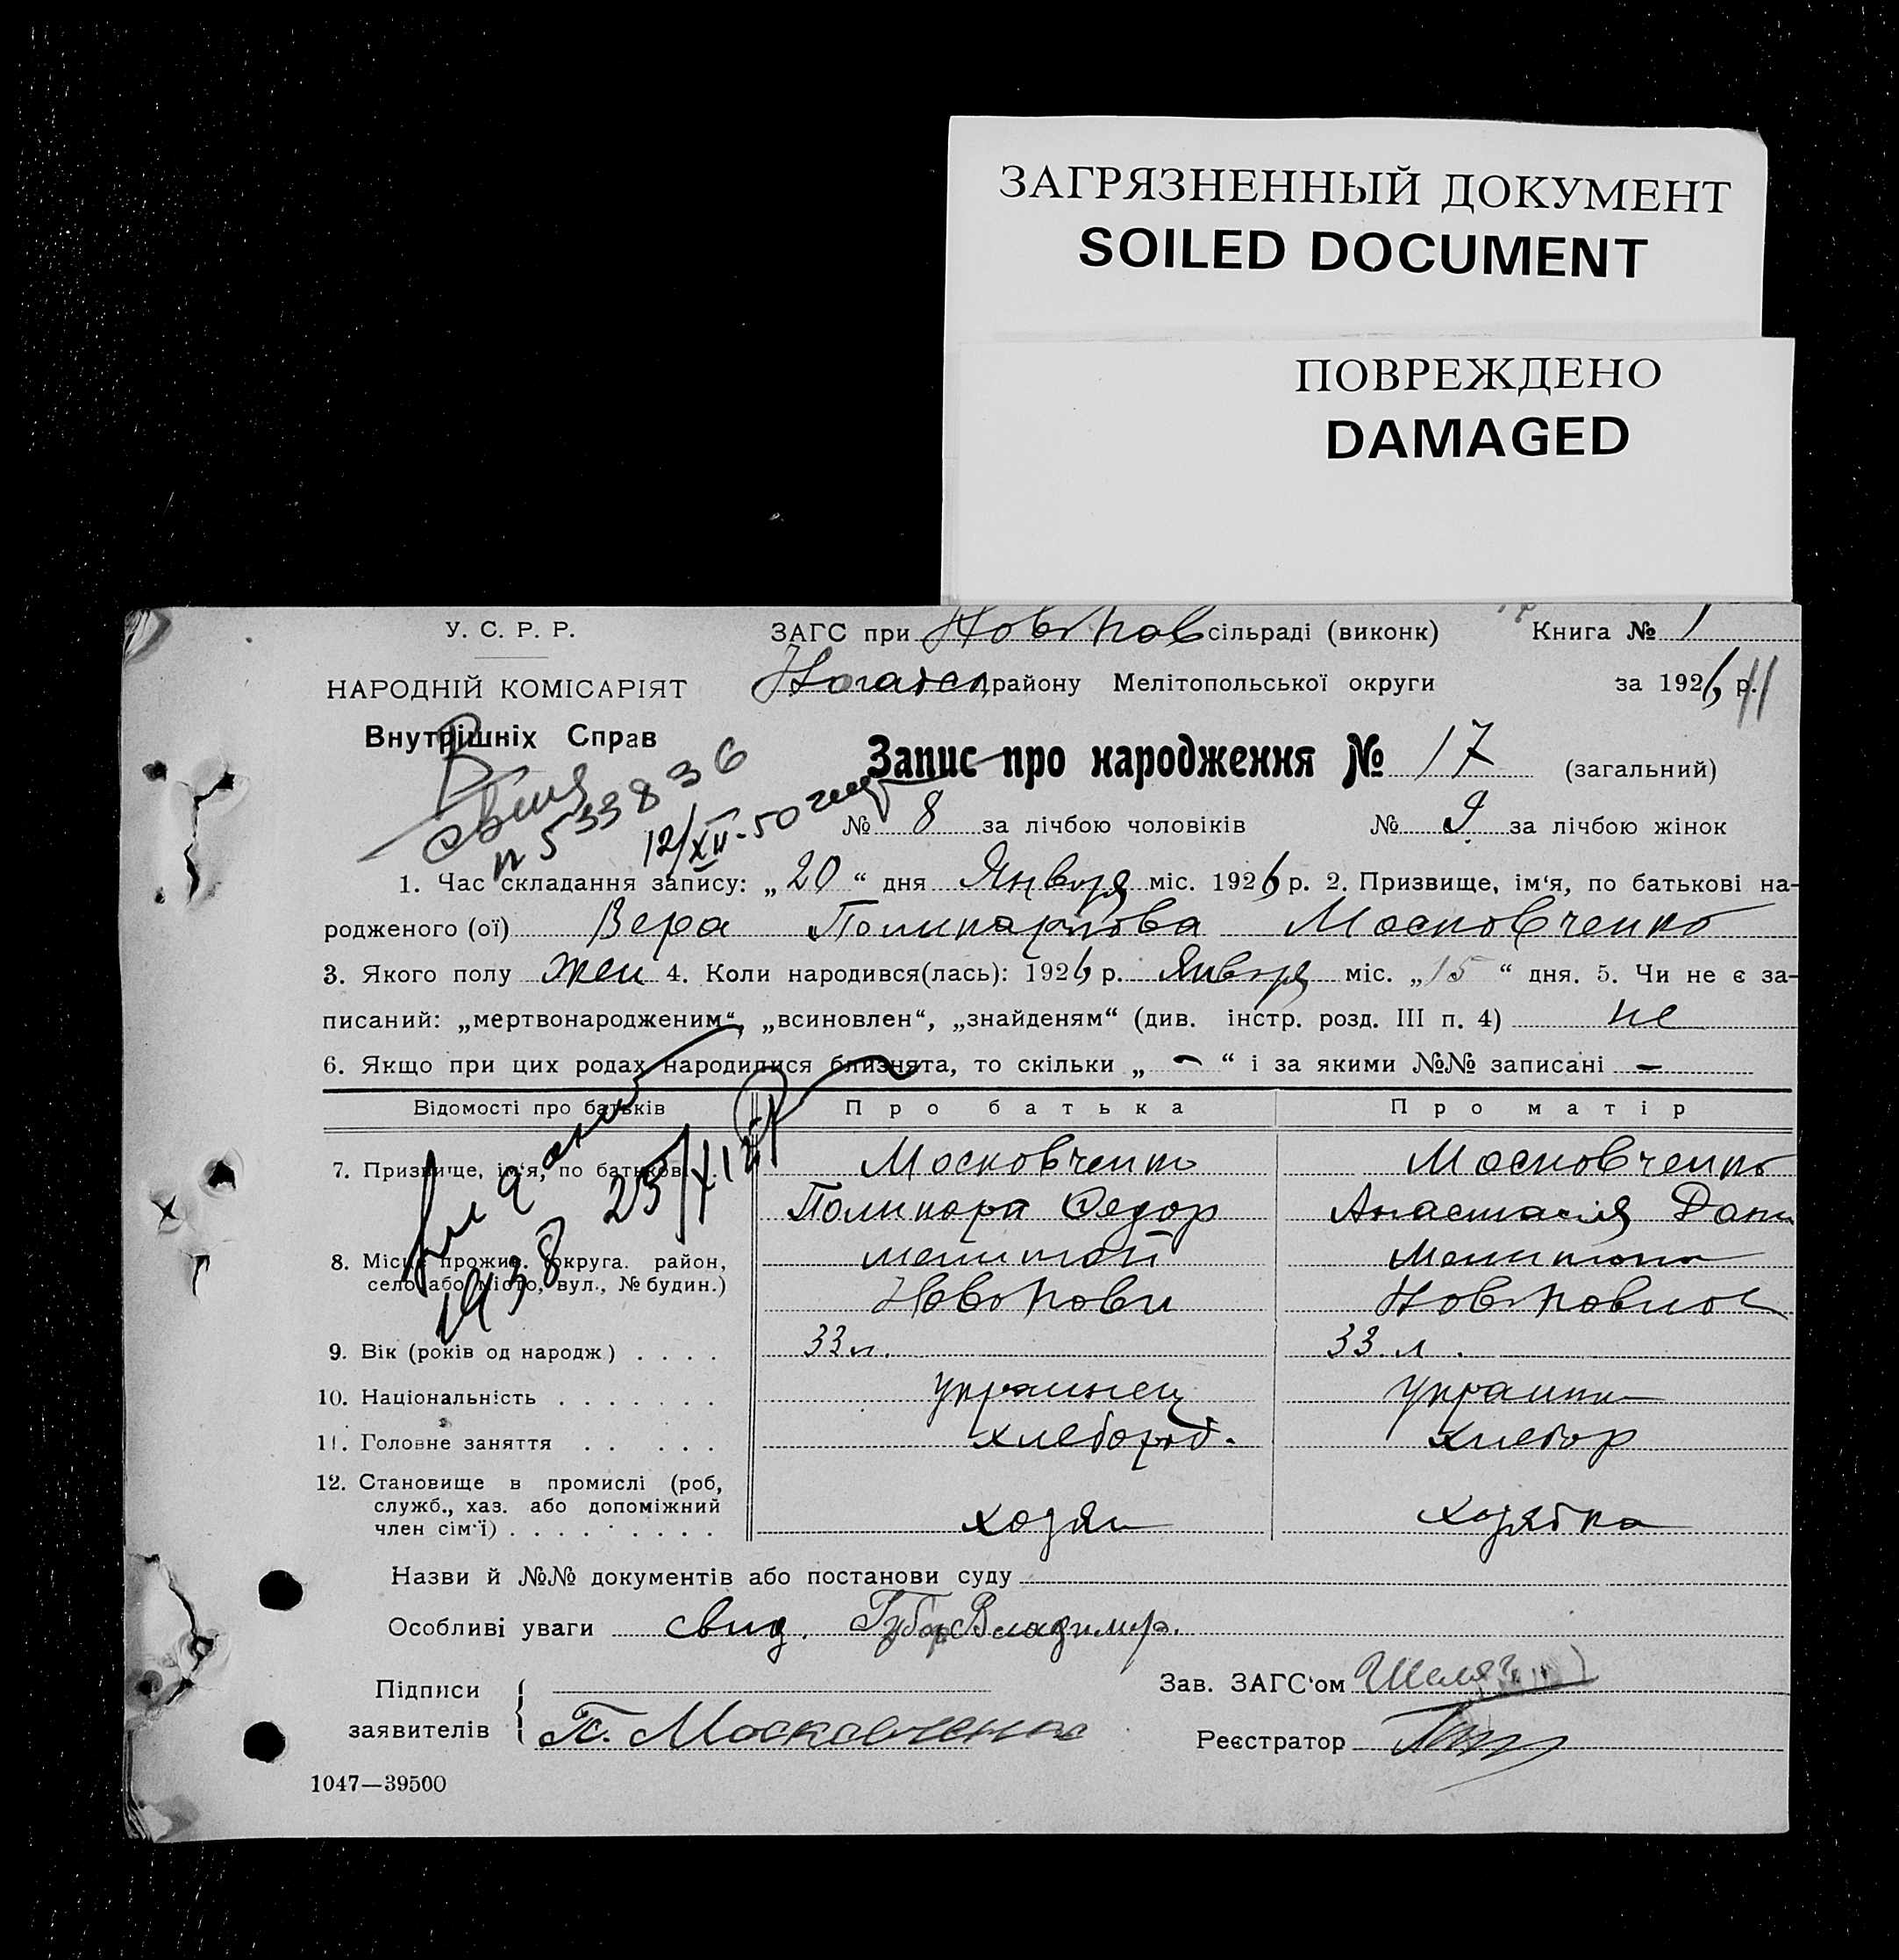 ЗАГРЯЗНЕННЫЙ ДОКУМЕНТ
SOILED DOCUMENT
ПОВРЕЖДЕНО
DAMAGED
У. С. Р. Р.
ЗАГС при сільраді (виконк) Книга № 1
НАРОДНІЙ КОМІСАРІЯТ
району Мелітопольської округи за 1926 р.
Внутрішніх Справ
Запис про народження № 17 (загальний)
№ 533836
12/XII-50
№ 8 за лічбою чоловіків № 9 за лічбою жінок
1. Час складання запису: „20“ дня Января міс. 1926 р. 2. Призвище, ім‘я, по батькові на-
родженого (ої) Вера Поликарпова Московченко
3. Якого полу жен 4. Коли народився(лась): 1926 р. Января міс. „15“ дня. 5. Чи не є за-
писаний: „мертвонародженим“, „всиновлен“, „знайденям“ (див. інстр. розд. III п. 4) не
6. Якщо при цих родах народилися близнята, то скільки „ - “ і за якими №№ записані -
Відомості про батьків Про батька Про матір
7. Призвище, ім‘я, по батькові Московченко Московченко
Поликарп Федор Анастасия Дани
8. Місце прожив. (округа. район, село або місто, вул., № будин.)
1938 25/XI
9. Вік (років од народж) . . . . 33 л. 33 л.
10. Національність . . . . . . . украинец украинк
11. Головне заняття . . . . . хлебороб. хлебор
12. Становище в промислі (роб,
служб., хаз. або допоміжний
член сім‘ї) . . . . . . . . . хозяин хозяйка
Назви й №№ документів або постанови суду
Особливі уваги свид. Владимир.
Підписи
заявителів П. Московченко
Зав. ЗАГС‘ом
Реєстратор
1047—39500